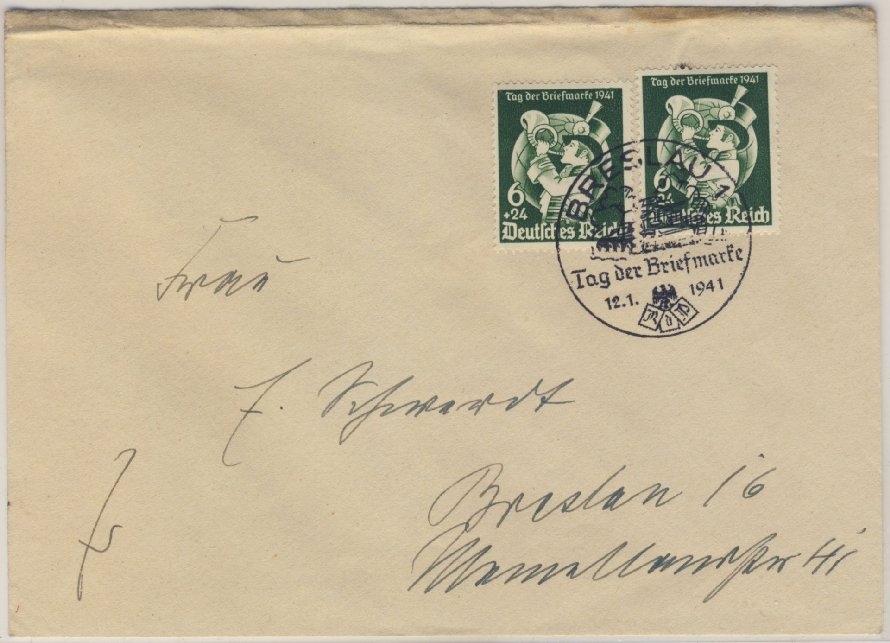 Tag der Briefmarke 1941
6
+24
Deutsches Reich
Tag der Briefmarke 1941
6
+24
Deutsches Reich
BRESLAU 1
Tag der Briefmarke
12.1. 1941
R d P
Frau
E. Schwerdt
Breslau 16
Memellandstr